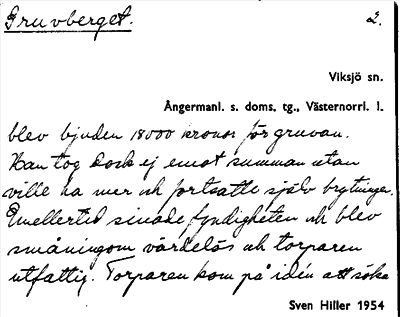 Gruvberget. 2.
Viksjö sn.
Ångermanl. s. doms. tg., Västernorrl. l.
blev bjuden 18000 kronor för gruvan.
Han tog dock ej emot summan utan
ville ha mer och fortsatte själv brytningen.
Emellertid sinade fyndigheten och blev
småningom värdelös och torparen
utfattig. Torparen kom på idén att söka
Sven Hiller 1954